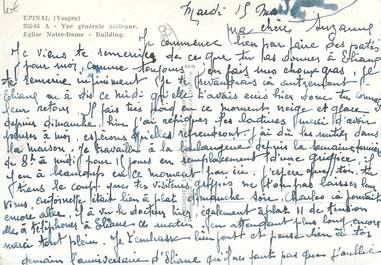 EPINAL (Vosges)
225-85 A - Vue générale aérienne.
Eglise Notre-Dame - Building.
Mardi 15 Mars
ma chère Suzanne
Je commence bien par faire des pâtés
Je viens te remercier de ce que tu as donnés à Eliane
pour moi, comme toujours, en fais nos choux gras. Je
te remercie infiniment je te revaudrais ça autrement.
Eliane m'a dit ce midi qu'elle t'avais eue hier donc tu
en retour. Il fais très froid en ce moment, neige et glace
depuis dimanche. hier j'ai repiqué des laitues
pousses à moi espérons qu'elles reprendront. j'ai dû les rentrer dans
la maison. Je travaille à la boulangerie depuis la semaine
de 8h à midi pour 15 jours en remplacement d'une grippée. il
y en a beaucoup en ce moment par ici. j'espère que ton
dans le coup que tes visiteurs grippés ne t'on pas laissés leur
virus, antoinette était bien à plat dimanche soir, Charles ça pourrait
encore aller. Il a vu le docteur hier, également à plat 11 de tension
elle a téléphonés à Eliane ce matin, en attendant plus long encore
merci tout plein. Je t'embrasse bien fort et pense bien à toi
demain l'anniversaire d'Eliane